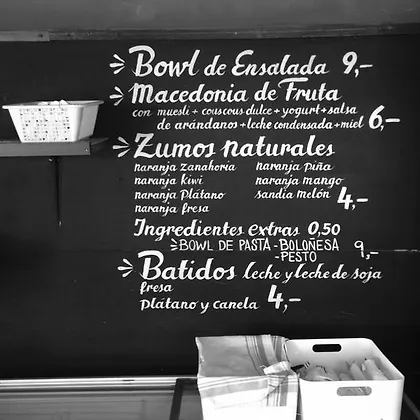 Bowl de Ensalada 9,-
Macedonia de Fruta
con muesli + couscous dulce + yogurt + salsa
de arándanos + leche condensada + miel 6,-
Zumos naturales
naranja zanahoria naranja piña
naranja kiwi naranja mango
naranja Plátano sandía melón 4,-
naranja fresa
Ingredientes extras 0,50
BOWL DE PASTA - BOLOÑESA 9,-
- PESTO
Batidos leche y leche de soja
fresa
Plátano y canela 4,-